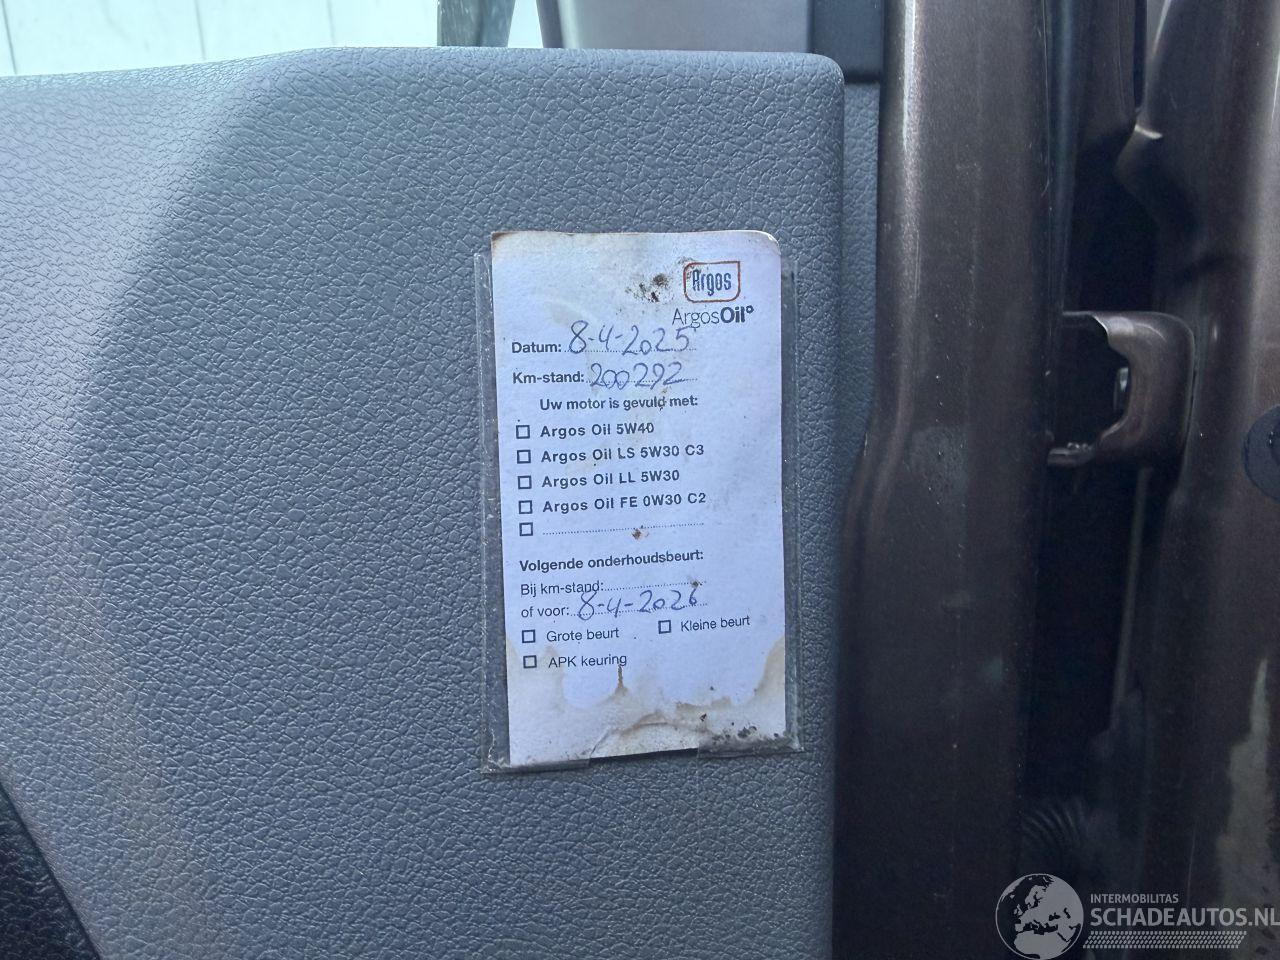 Argos
ArgosOil
Datum: 8-4-2025
Km-stand: 200292
Uw motor is gevuld met:
☐ Argos Oil 5W40
☐ Argos Oil LS 5W30 C3
☐ Argos Oil LL 5W30
☐ Argos Oil FE 0W30 C2
☐
Volgende onderhoudsbeurt:
Bij km-stand:
of voor: 8-4-2026
☐ Grote beurt ☐ Kleine beurt
☐ APK keuring
INTERMOBILITAS
SCHADEAUTOS.NL